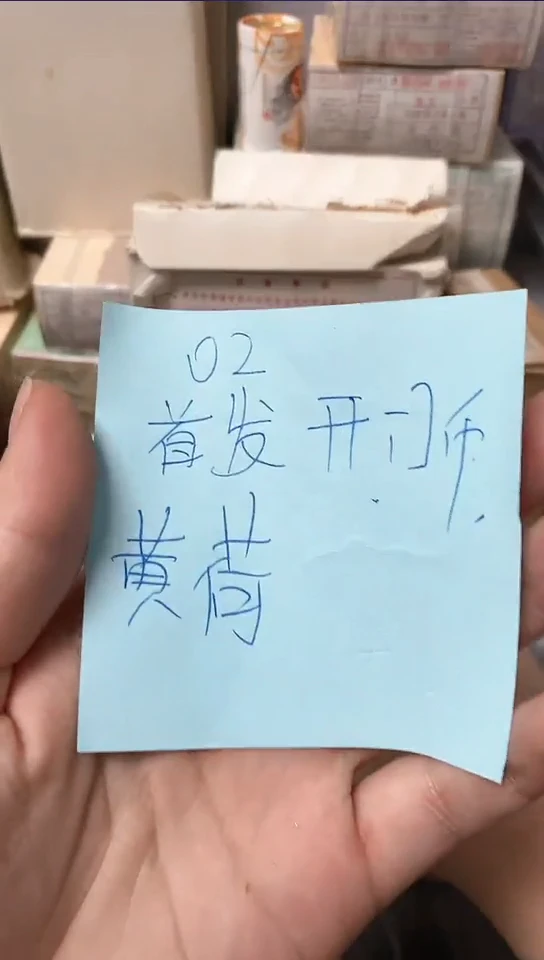 02
首发 开门币
黄荷